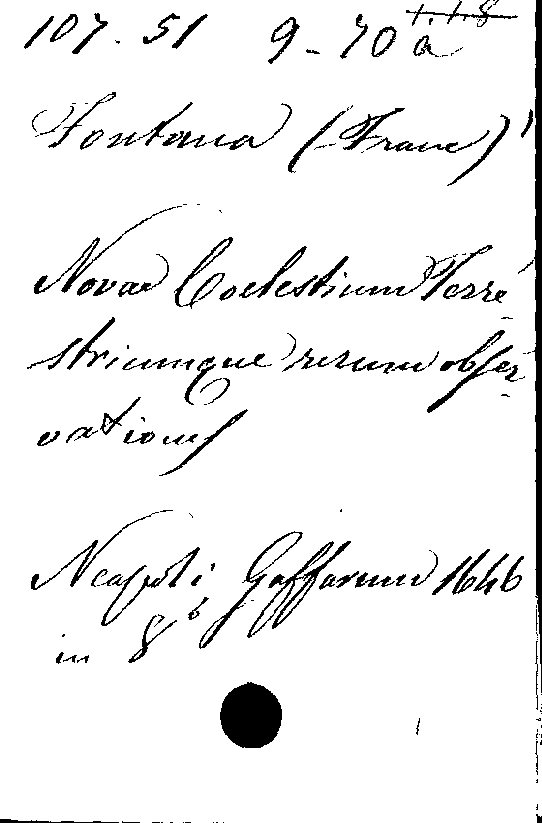 107. 51 9-70 a
Fontana (Franc)
Novae Coelestium Terre-
striumque rerum obser-
vationes
Neapoli Gaffarum 1646
in 8°